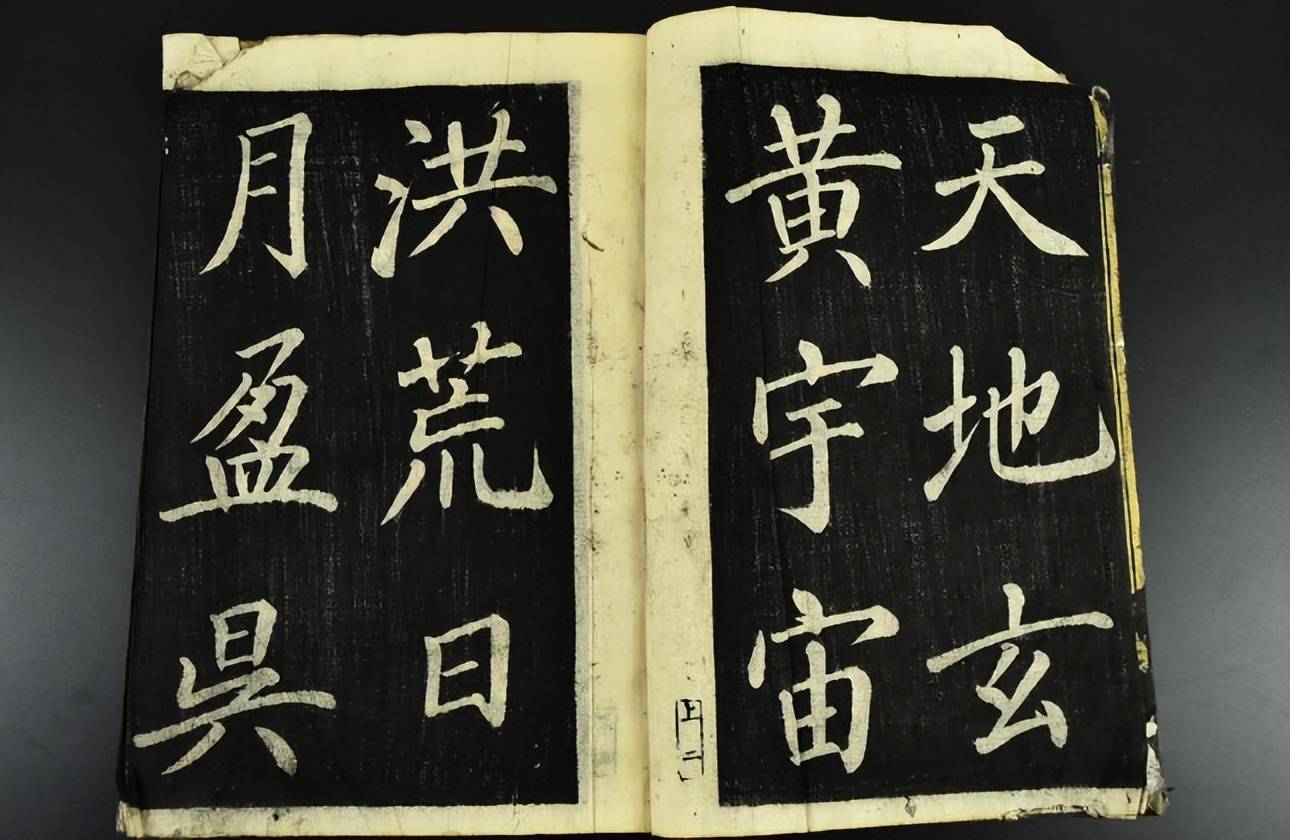 天地玄
黄宇宙
洪荒日
月盈昗
上二